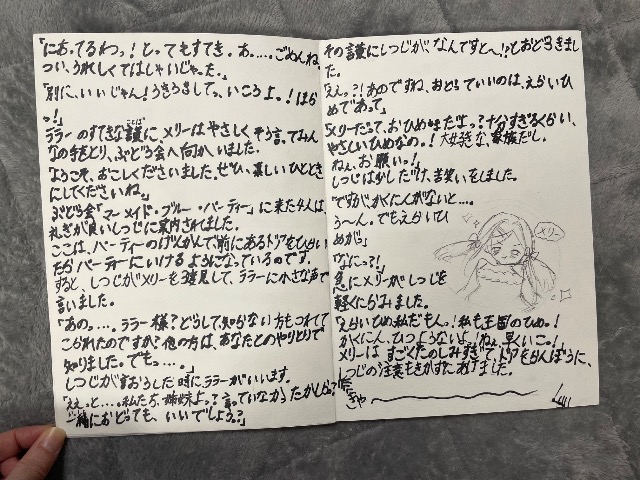 「にあってるわっ！とってもすてき。あ……ごめんね、
つい、うれしくてはしゃいじゃった。」
「別に、いいじゃん！うきうきしてっ、いこうよっ！はら
っ！」
ララーのすてきな言葉にメリーはやさしくそう言、てみん
ことば
なの手をとり、ぶどう会へ向かいました。
「ようこそ、おこしくださいました。ぜひ、楽しいひととき
にしてくださいね。」
ぶどう会「マーメイド・ブルー・パーティー」に来た4人は、
れいぎが良いしつじに案内されました。
ここは、パーティーのげんかんで前にあるドアをひらい
たらパーティーにいけるようになっているのです。
すると、しつじがメリーを見て、ララーに小さな声で
言いました。
「あの。…。ララー様？どうして、知らない方もつれてて
こられたのですか？他の方は、あなたとのやりとりで
知りました。でも。…。」
しつじがすおうした時にララーがいいます。
「ええっと…。私たち、姉妹よっ？言っていなかったかしら？
一緒におどっても、いいでしょう？」
その言葉にしつじが、なんですと～！？とおどろきまし
た。
「ええっ？！あのですね、おどっていいのは、えらいひ
めであって」
「メリーだって、おひめさまだよっ？十分すぎるくらい、
やさしいひめなの。！大好きな、家族だし。
ねえ、お願いっ！」
しつじは少しだけ、苦笑いをしました。
「ですが、かくにんがないと…。
う～ん。でもえらいひ
めがっ」
「なにっ？！」
急にメリーがしつじを
軽くにらみました。
「えらいひめ、私だもんっ！私も王国のひめっ！
かくにん、ひつようないよ！ねえ、早くいこ！」
メリーは、すごくたのしみすぎて、ドアをらんぼうに、
しつじの注意もきかずにあけました。
メリー